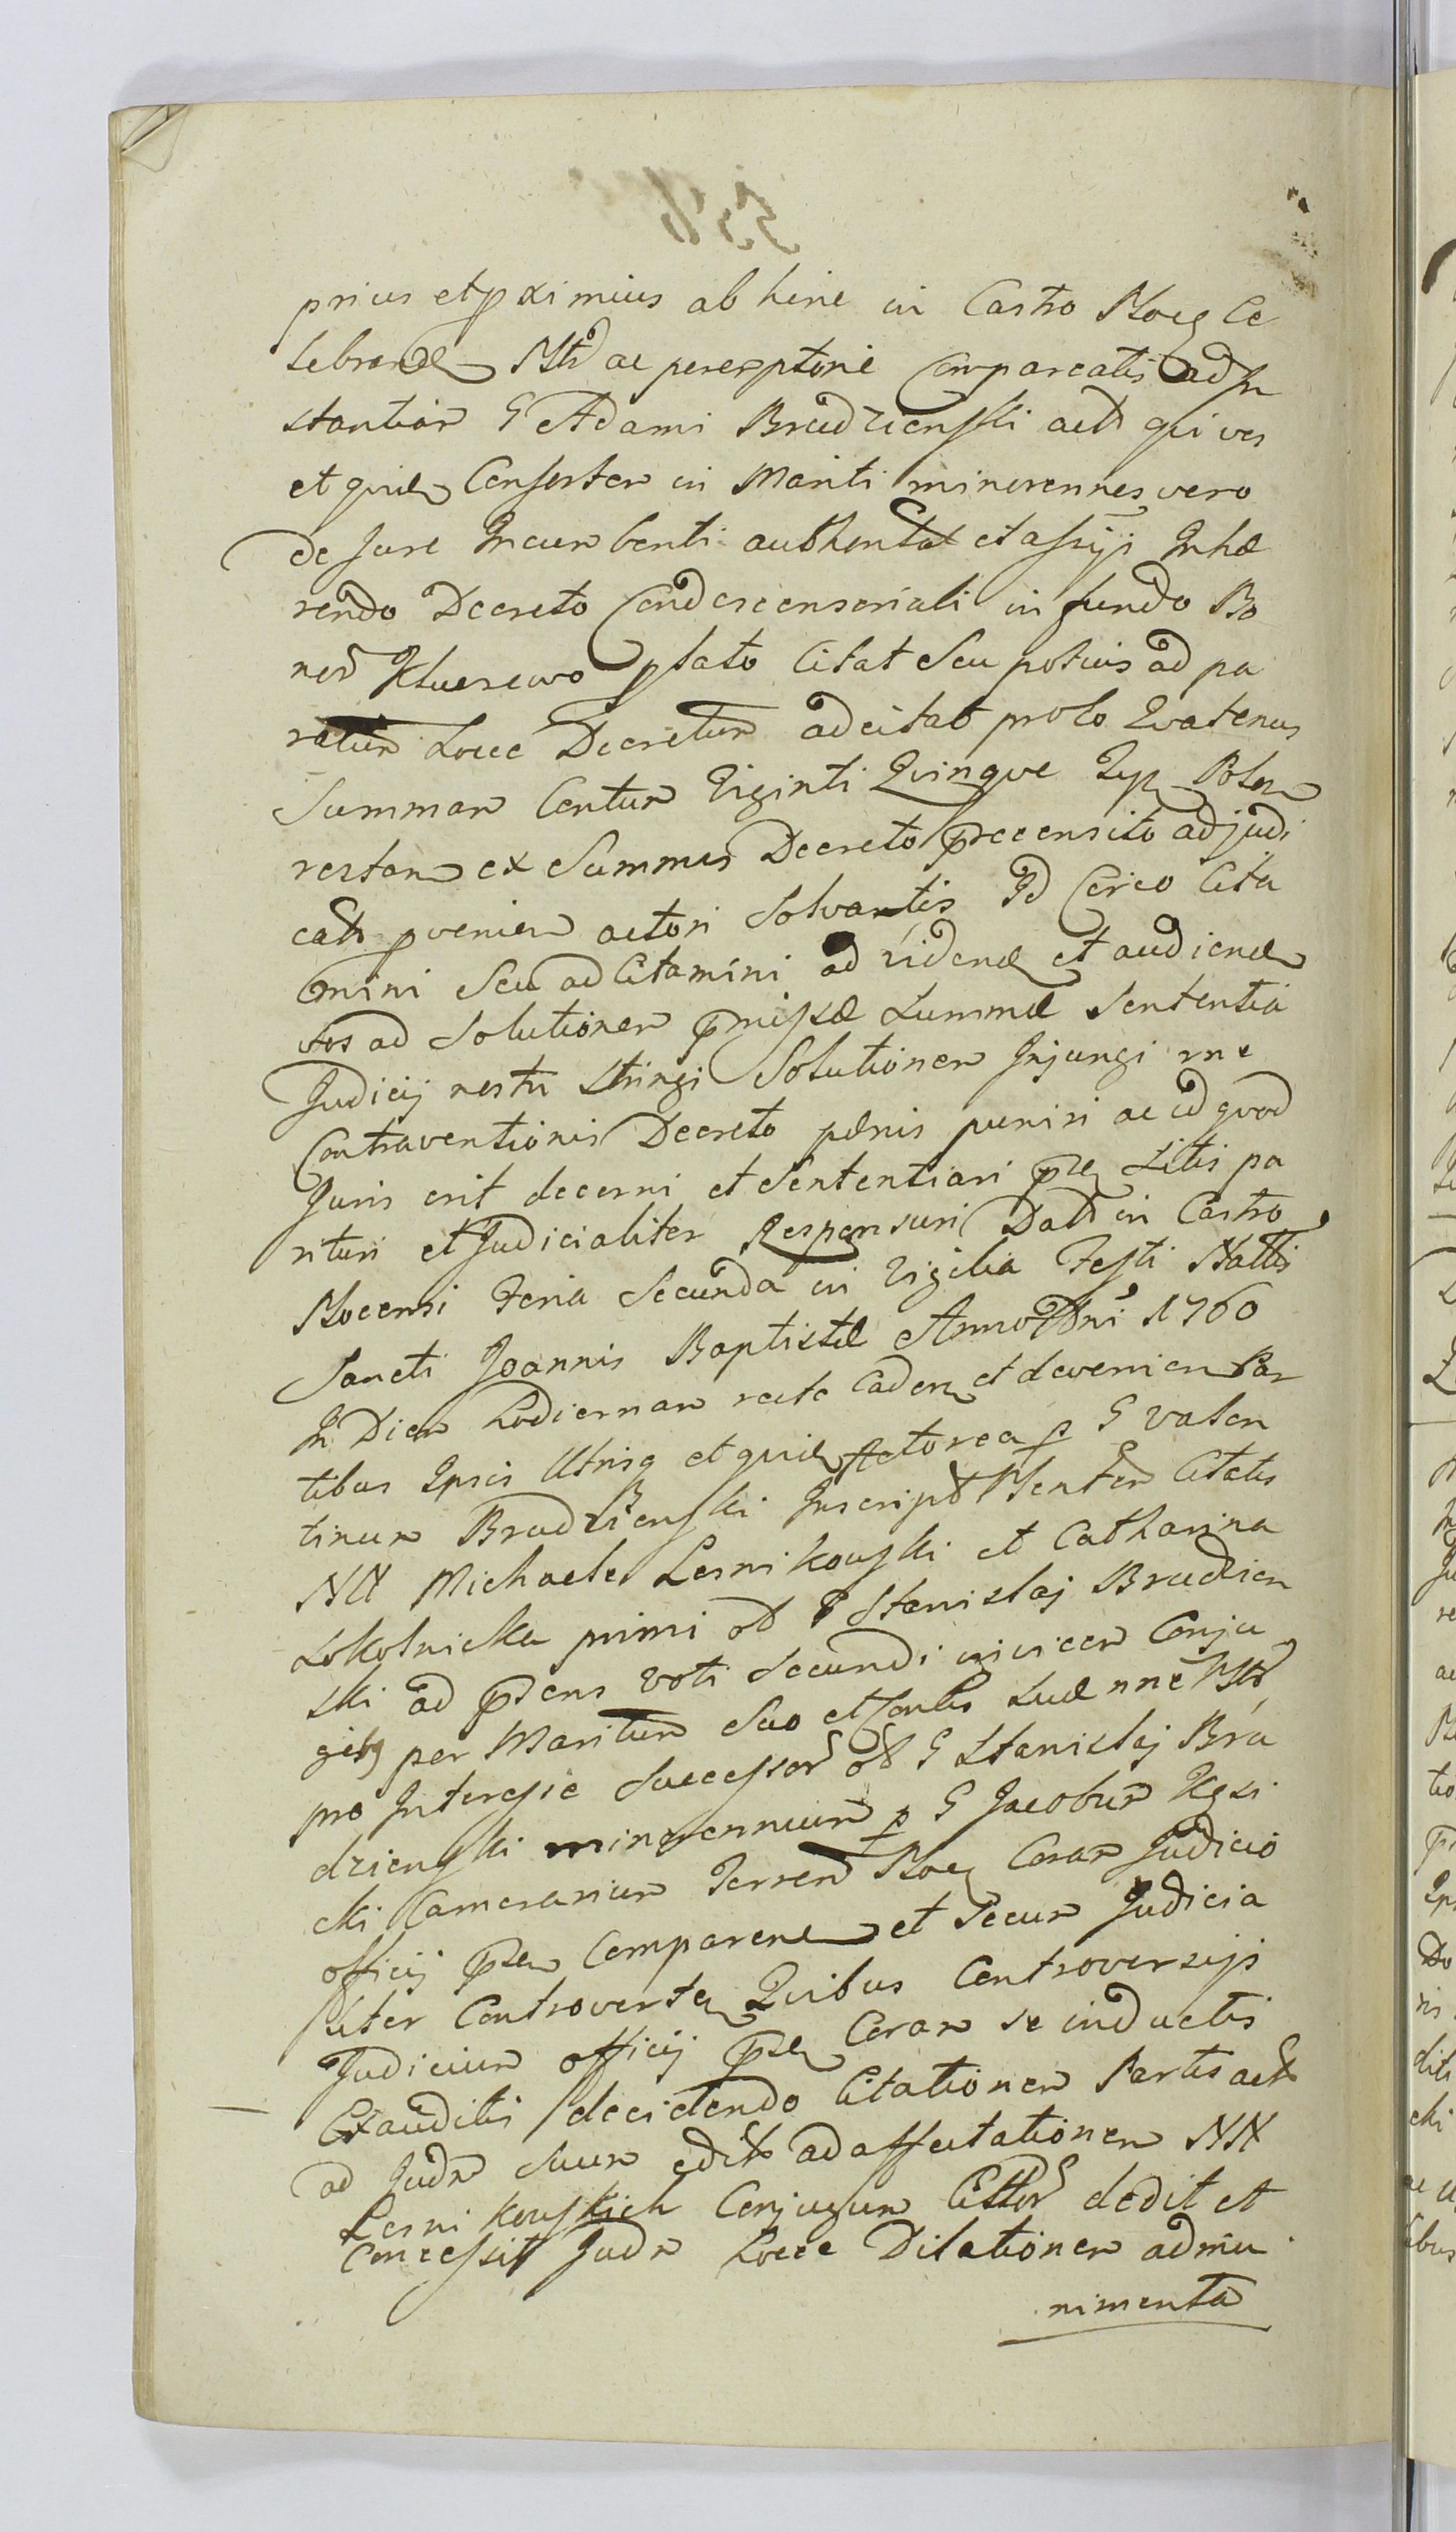 prius et pximius ab hinc in Castro Ploc Ce
lebrand Mtd ac peremptorie Compareatis ad In
stantiam G Adami Brudzienski act qui vos
et quid Consorten in Mariti minorennes vero
de Jure Incumbenti authentat et assijs Inhæ
rendo Decreto Condescensoriali in fundo Bo
nor Kluszewo plato Citat Seu potius ad pa
ratum Locce Decretum adcitat prolo Qvatenus
Summam Centum Viginti Qvinqve Tyn Polon
restan ex Summis Decreto præcensito adjudi
catis pvenien actori Solvatis Id Circo Cita
mini Seu ad Citamini ad vidend et audiend
vos ad Solutionem pmissæ Summæ Sententia
Judicij nostri Stringi Solutionem Injungi rne
Contraventionis Decreto pænis puniri ac id qvod
Juris erit decerni et Sententiari pte Litis pa
rituri et Judicialiter Responsuri Datt in Castro
Plocensi Feria Secunda in Vigilia Festi Nattis
Sancti Joannis Baptistæ Anno Dni 1760
In Diem hodiernam recte Caden et devenien Par
tibus Ipsis Utrisq et quid Actorea p G Valen
tinum Brudzienski Inscript Plenten Citatis
NN Michaele Lesnikowski et Catharina
Sokolnicka primi od G Stanislaj Brudzien
ski ad psens voti Secundi invicem Conju
gibq per Maritum Suo et Contis Suæ nne
pro Interesse Successor od G Stanislaj Bru
dzienski minorennium p G Jacobum Kęsi
cki Camerarium Terren Ploc Coram Judicio
officij pten Comparen et Secum Judicia
liter Controverten Qvibus Controversijs
Judicium officij pten Coram se inductis
Exauditis decidendo Citationem Partis act
ad Judm Suum edit ad affectationem NN
Lesnikowskich Conjugum Cittor dedit et
Concessit Judm Locce Dilationem ad mu
nimenta